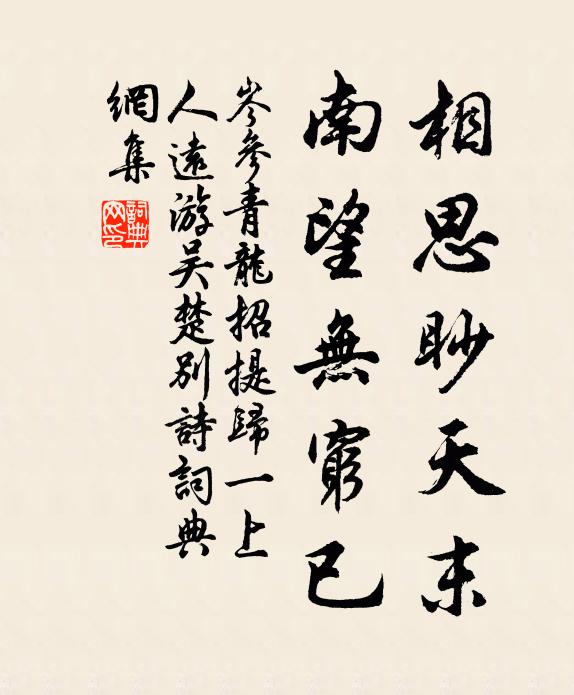 相思眇天末
南望無窮已
岑參青龍招提歸一上
人遠游吳楚別詩詞典
網集
詞典
网印